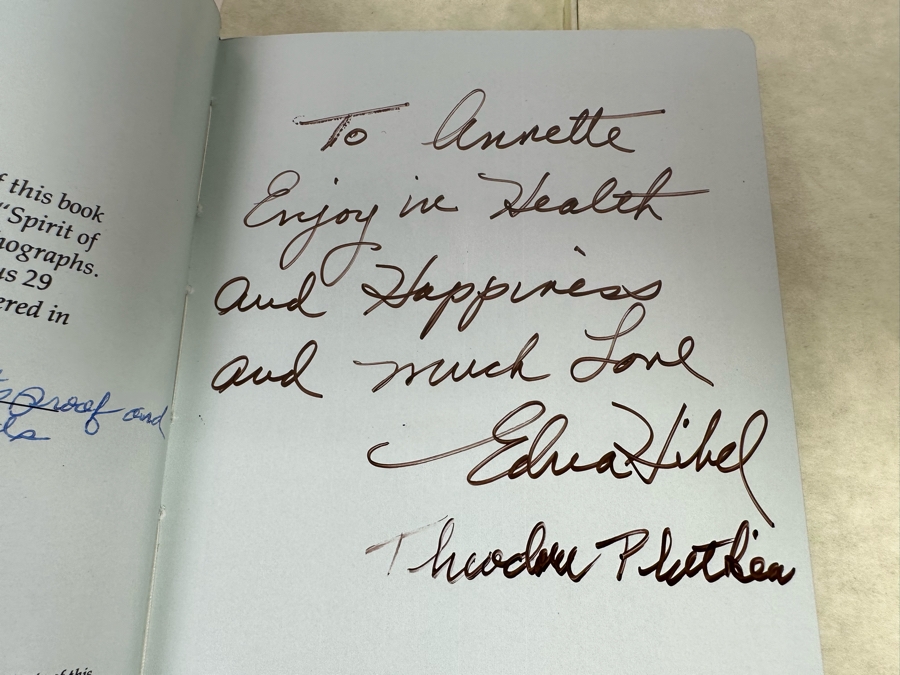 f this book
"Spirit of
nographs.
us 29
ered in
proof and
ls
To Annette
Enjoy in Health
and Happiness
and much Love
Edna Hibel
Theodore Plotkin
of this